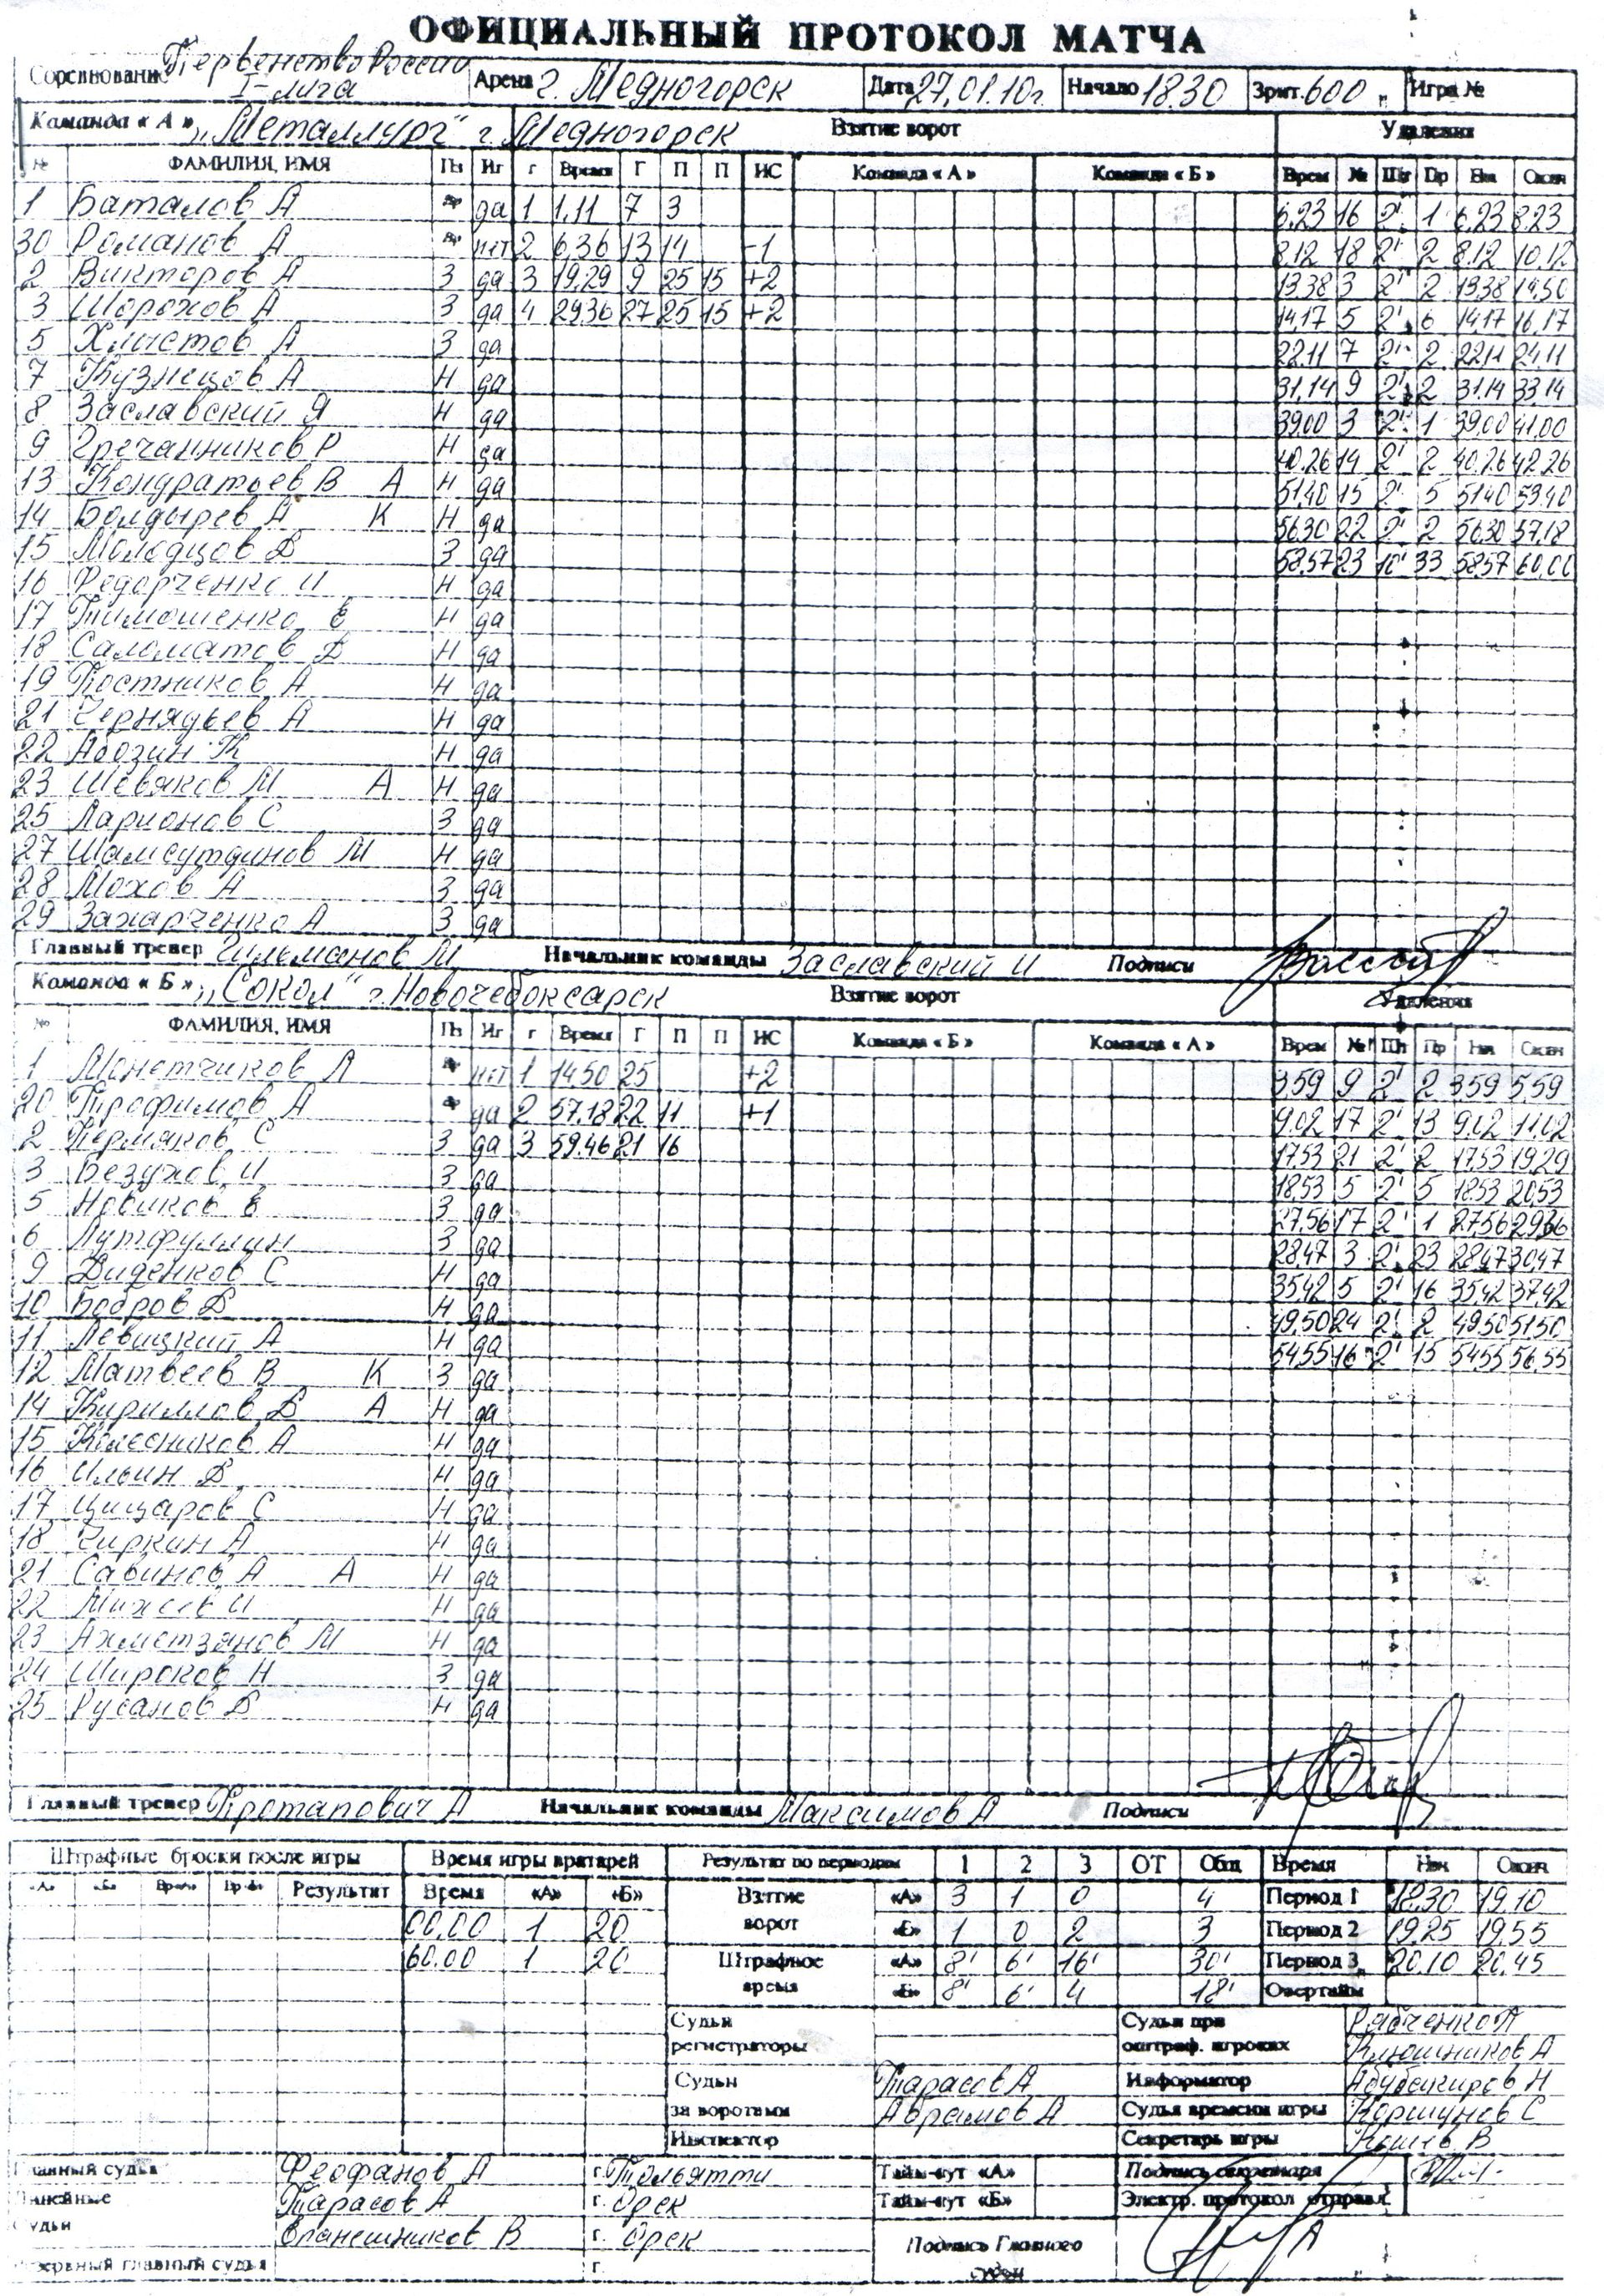 ОФИЦИАЛЬНЫЙ ПРОТОКОЛ МАТЧА
Соревнование Первенство России I-лига Арена г. Медногорск Дата 27.01.10г. Начало 18.30 Зрит. 600 Игра №
Команда « А » „Металлург" г. Медногорск Взятие ворот Удаления
№ ФАМИЛИЯ, ИМЯ Пз Иг г Время Г П П ИС Команда « А » Команда « Б » Врем № Шт Пр Нач Оконч
1 Баталов А Вр да 1 1.11 7 3 6.23 16 2' 1 6.23 8.23
30 Романов А Вр нет 2 6.36 13 14 -1 8.12 18 2' 2 8.12 10.12
2 Викторов А З да 3 19.29 9 25 15 +2 13.38 3 2' 2 13.38
3 Шорохов А З да 4 29.36 27 25 15 +2 14.17 5 2' 6 14.17 16.17
5 Хлистов А З да 22.11 7 2' 2 22.11 24.11
7 Кузнецов А Н да 31.14 9 2' 2 31.14 33.14
8 Заславский Я Н да 39.00 3 2' 1 39.00 41.00
9 Гречанников Р Н да 40.26 14 2' 2 40.26 42.26
13 Кондратьев В А Н да 51.40 15 2' 5 51.40 53.40
14 Болдырев А К Н да 56.30 22 2' 2 56.30 57.18
15 Молодцов Д З да 58.57 23 10' 33 58.57 60.00
16 Федорченко И Н да
17 Тимошенко Е Н да
18 Саломатов Д Н да
19 Постников А Н да
21 Чернядьев А Н да
22 Абозин К Н да
23 Шевяков М А Н да
25 Ларионов С З да
27 Шамсутдинов М Н да
28 Мохов А З да
29 Захарченко А З да
Главный тренер Гильманов М Начальник команды Заславский И Подписи
Команда « Б » „Сокол" г. Новочебоксарск Взятие ворот Удаления
№ ФАМИЛИЯ, ИМЯ Пз Иг г Время Г П П ИС Команда « Б » Команда « А » Врем № Шт Пр Нач Оконч
1 Монетчиков Л Вр нет 1 14.50 25 +2 3.59 9 2' 2 3.59 5.59
20 Трофимов А Вр да 2 57.18 22 11 +1 9.02 17 2' 13 9.02 11.02
2 Пермяков С З да 3 59.46 21 16 17.53 21 2' 2 17.53 19.29
3 Безухов И З да 18.53 5 2' 5 18.53 20.53
5 Новиков Е З да 27.56 17 2' 1 27.56 29.36
6 Лутфуллин З да 28.47 3 2' 23 28.47 30.47
9 Диденков С Н да 35.42 5 2' 16 35.42 37.42
10 Бобров Д Н да 49.50 24 2' 2 49.50 51.50
11 Левицкий А Н да 54.55 16 2' 15 54.55 56.55
12 Матвеев В К З да
14 Кириллов Д А Н да
15 Колесников А Н да
16 Ильин Д Н да
17 Цицаров С Н да
18 Чиркин А Н да
21 Савинов А А Н да
22 Михеев И Н да
23 Ахметзянов М Н да
24 Широков Н З да
25 Русанов Д Н да
Главный тренер Протапович А Начальник команды Максимов А Подписи
Штрафные броски после игры Время игры вратарей Результат по периодам 1 2 3 ОТ Общ Время Нач Оконч
«А» «Б» Вр«А» Вр«Б» Результат Время «А» «Б» Взятие «А» 3 1 0 4 Период 1 18.30 19.10
00.00 1 20 ворот «Б» 1 0 2 3 Период 2 19.25 19.55
60.00 1 20 Штрафное «А» 8' 6' 16' 30' Период 3 20.10 20.45
время «Б» 8' 6' 4 18' Овертайм
Судьи Судьи при Рябченко А
регистраторы оштраф. игроках Клюшников А
Судьи Тарасов А Информатор Абубакиров Н
за воротами Абрамов А Судья времени игры Коршунов С
Инспектор Секретарь игры
Главный судья Феофанов А г. Тольятти Тайм-аут «А» Подпись секретаря
Линейные Тарасов А г. Орск Тайм-аут «Б» Электр. протокол отправл.
судьи Вранешников В г. Орск
Подпись Главного
Резервный главный судья г. судьи